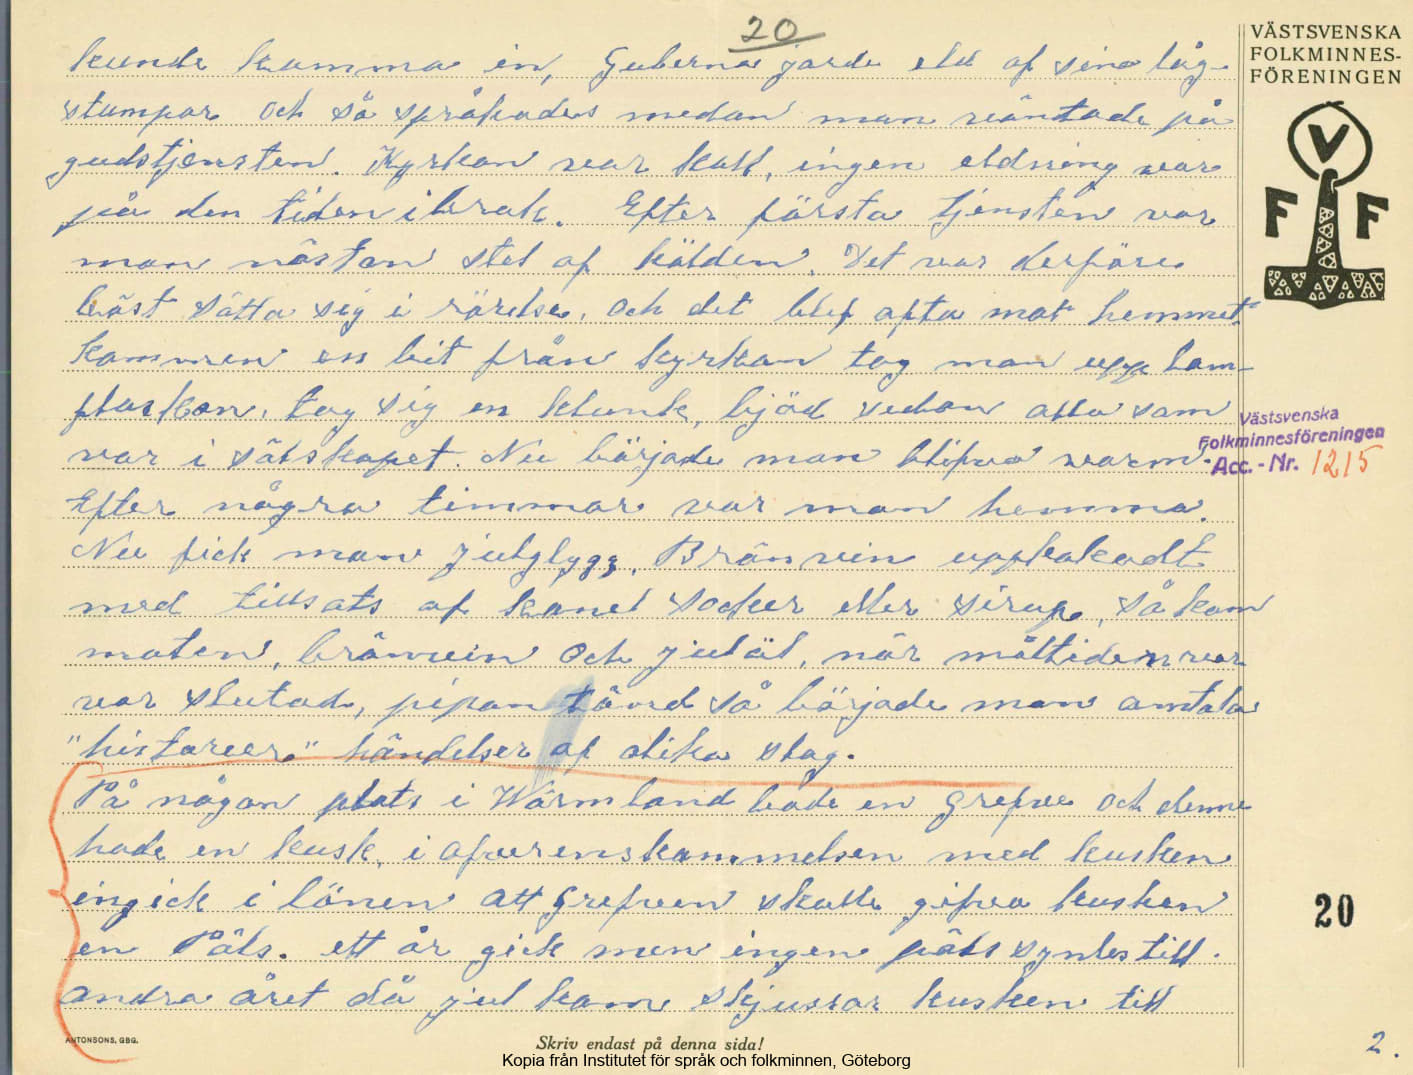 20
VÄSTSVENSKA
FOLKMINNES-
FÖRENINGEN
V
F F
kunde komma in, Guberna jorde eld af sina låg-
stumpar och så språkades medan man väntade på
gudstjensten. Kyrkan var kall, ingen eldning var
på den tiden i bruk. Efter första tjensten var
man nästan stel af kölden. Det var derföre
bäst sätta sig i rörelse, och det blef ofta mot hemmet.
kommen en bit från kyrkan tog man upp lom-
flaskan, tog sig en klunk, bjöd sedan alla som
var i sälskapet. Nu började man blifva varm.
Efter några timmar var man hemma.
Nu fick man julglygg, Bränvin uppkokadt
med tillsats af kanel socker eller sirup, så kom
maten, bränvin och julöl, när måltiden var
var slutad, pipan tänd så började man omtala
"historier" händelser af olika slag.
På någon plats i Wärmland bode en Grefve och denne
hade en kusk, i öfverenskommelsen med kusken
ingick i lönen att Grefven skulle gifva kusken
en Päls. ett år gick men ingen päls syntes till.
andra året då jul kom skjussar kusken till
Västsvenska
Folkminnesföreningen
Acc. - Nr. 1215
20
2.
ANTONSONS, GBG.
Skriv endast på denna sida!
Kopia från Institutet för språk och folkminnen, Göteborg